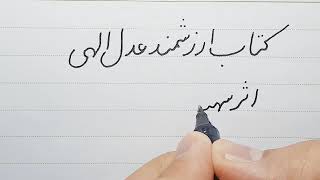 کتاب ارزشمند عدل الهی
اثر